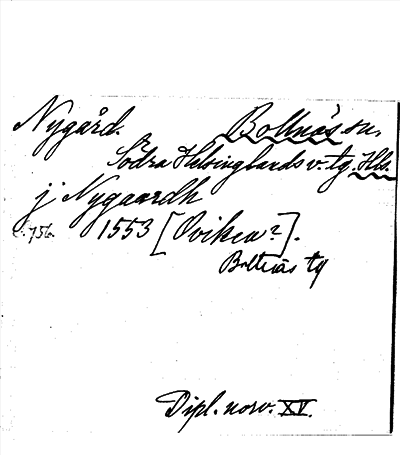 Nygård. Bollnäs sn.
Södra Helsinglands v. tg. Hls.
j Nygaardh
s. 756. 1553 [Ovikca?].
Bollnäs tg
Dipl. norv. XV.